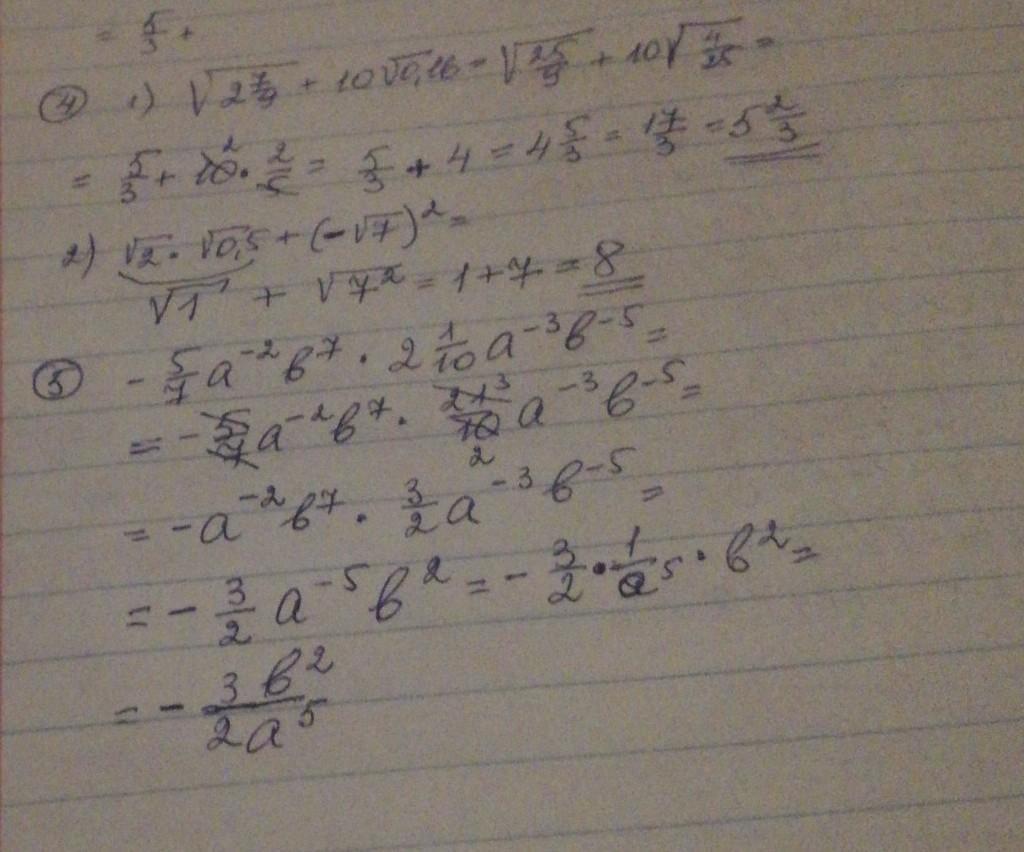 = 5/3 +
④ 1) √(2 7/9) + 10√0,16 = √(25/9) + 10√(4/25) =
= 5/3 + 10² · 2/5 = 5/3 + 4 = 4 5/3 = 17/3 = 5 2/3
2) √2 · √0,5 + (-√7)² =
√1 + √7² = 1 + 7 = 8
⑤ - 5/7 a⁻² b⁷ · 2 1/10 a⁻³ b⁻⁵ =
= - 5/7 a⁻² b⁷ · 21³/10₂ a⁻³ b⁻⁵ =
= - a⁻² b⁷ · 3/2 a⁻³ b⁻⁵ =
= - 3/2 a⁻⁵ b² = - 3/2 · 1/a⁵ · b² =
= - 3b²/2a⁵